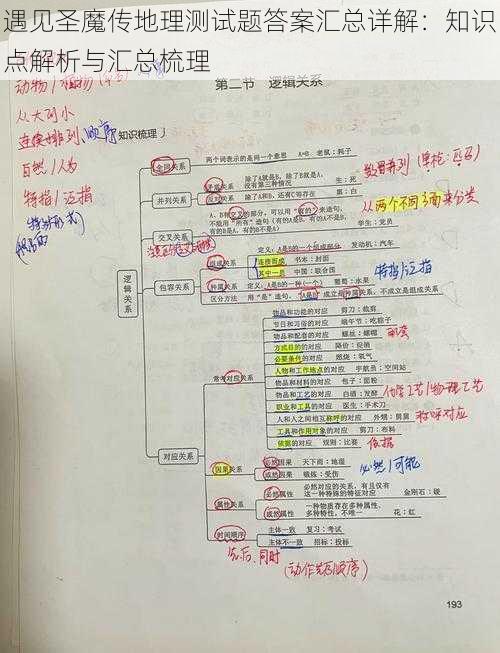 遇见圣魔传地理测试题答案汇总详解：知识
点解析与汇总梳理
动物/植物
从大到小
连续排列、顺序
自然/人为
特指/泛指
第二节 逻辑关系
知识梳理
逻辑关系
全同关系
两个词表示的是同一个意思 A=B 老鼠：耗子
并列关系
矛盾关系
除了A就是B，除了B就是A，
没有第三种情况
生：死
反对关系
除了A和B，还有C等存在
黑：白
数量并列
从两个不同方面来分类
交叉关系
A、B有交叉的部分，可以用“有的”来造句，
不能用“所有”（有的A是B，有的A不是B，
有的B是A，有的B不是A）
学生：党员
包容关系
组成关系
定义：A是B的一个组成部分 发动机：汽车
连接而成 书本：封面
其中一员 中国：联合国
种属关系
定义：A是B的一种（一个） 葡萄：水果
区分方法 用“是”造句，“A是B”成立是种属关系，不成立是组成关系
特指/泛指
对应关系
常考对应关系
物品和功能的对应 剪刀：裁剪
节日和习俗的对应 端午节：吃粽子
物品和配套的对应 螺丝：螺帽
配套
方式目的的对应 降价：促销
必要条件的对应 燃烧：氧气
人物和工作地点的对应 宇航员：空间站
物品和材料的对应 包子：面粉
物品和工艺的对应 白酒：发酵
化学工艺/物理工艺
职业和工具的对应 医生：手术刀
人和人之间相互称呼的对应 外甥：舅舅
称呼对应
工具和作用对象的对应 剪刀：布料
依据的对应 规则：比赛
依据
因果关系
必然因果 天下雨：地湿
或然因果 锻炼：受伤
必然/可能
属性关系
必然属性
必然对应的关系，有且仅有
这一种特殊的特征对应
金刚石：硬
或然属性
一种物质存在多种属性，
多种特性，不唯一
花：红
时间顺序
主体一致 复习：考试
主体不一致 招标：投标
先后、同时
（动作先后顺序）
193